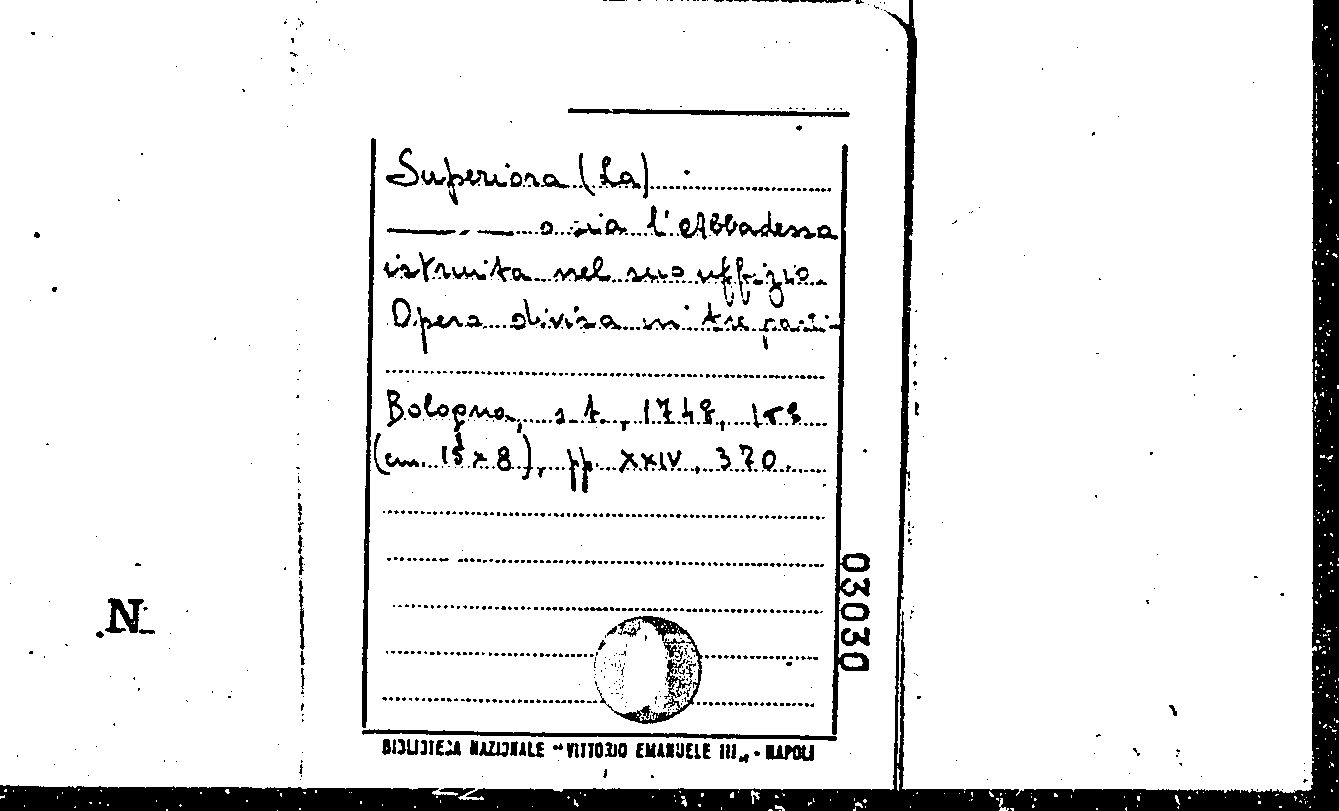 Superiora (La)
——— o sia l'Abbadessa
istruita nel suo uffizio.
Opera divisa in tre parti
Bologna, s. t., 1748, 
(cm. 15 x 8), pp. XXIV, 370.
03030
N
BIBLIOTECA NAZIONALE "VITTORIO EMANUELE III" - NAPOLI